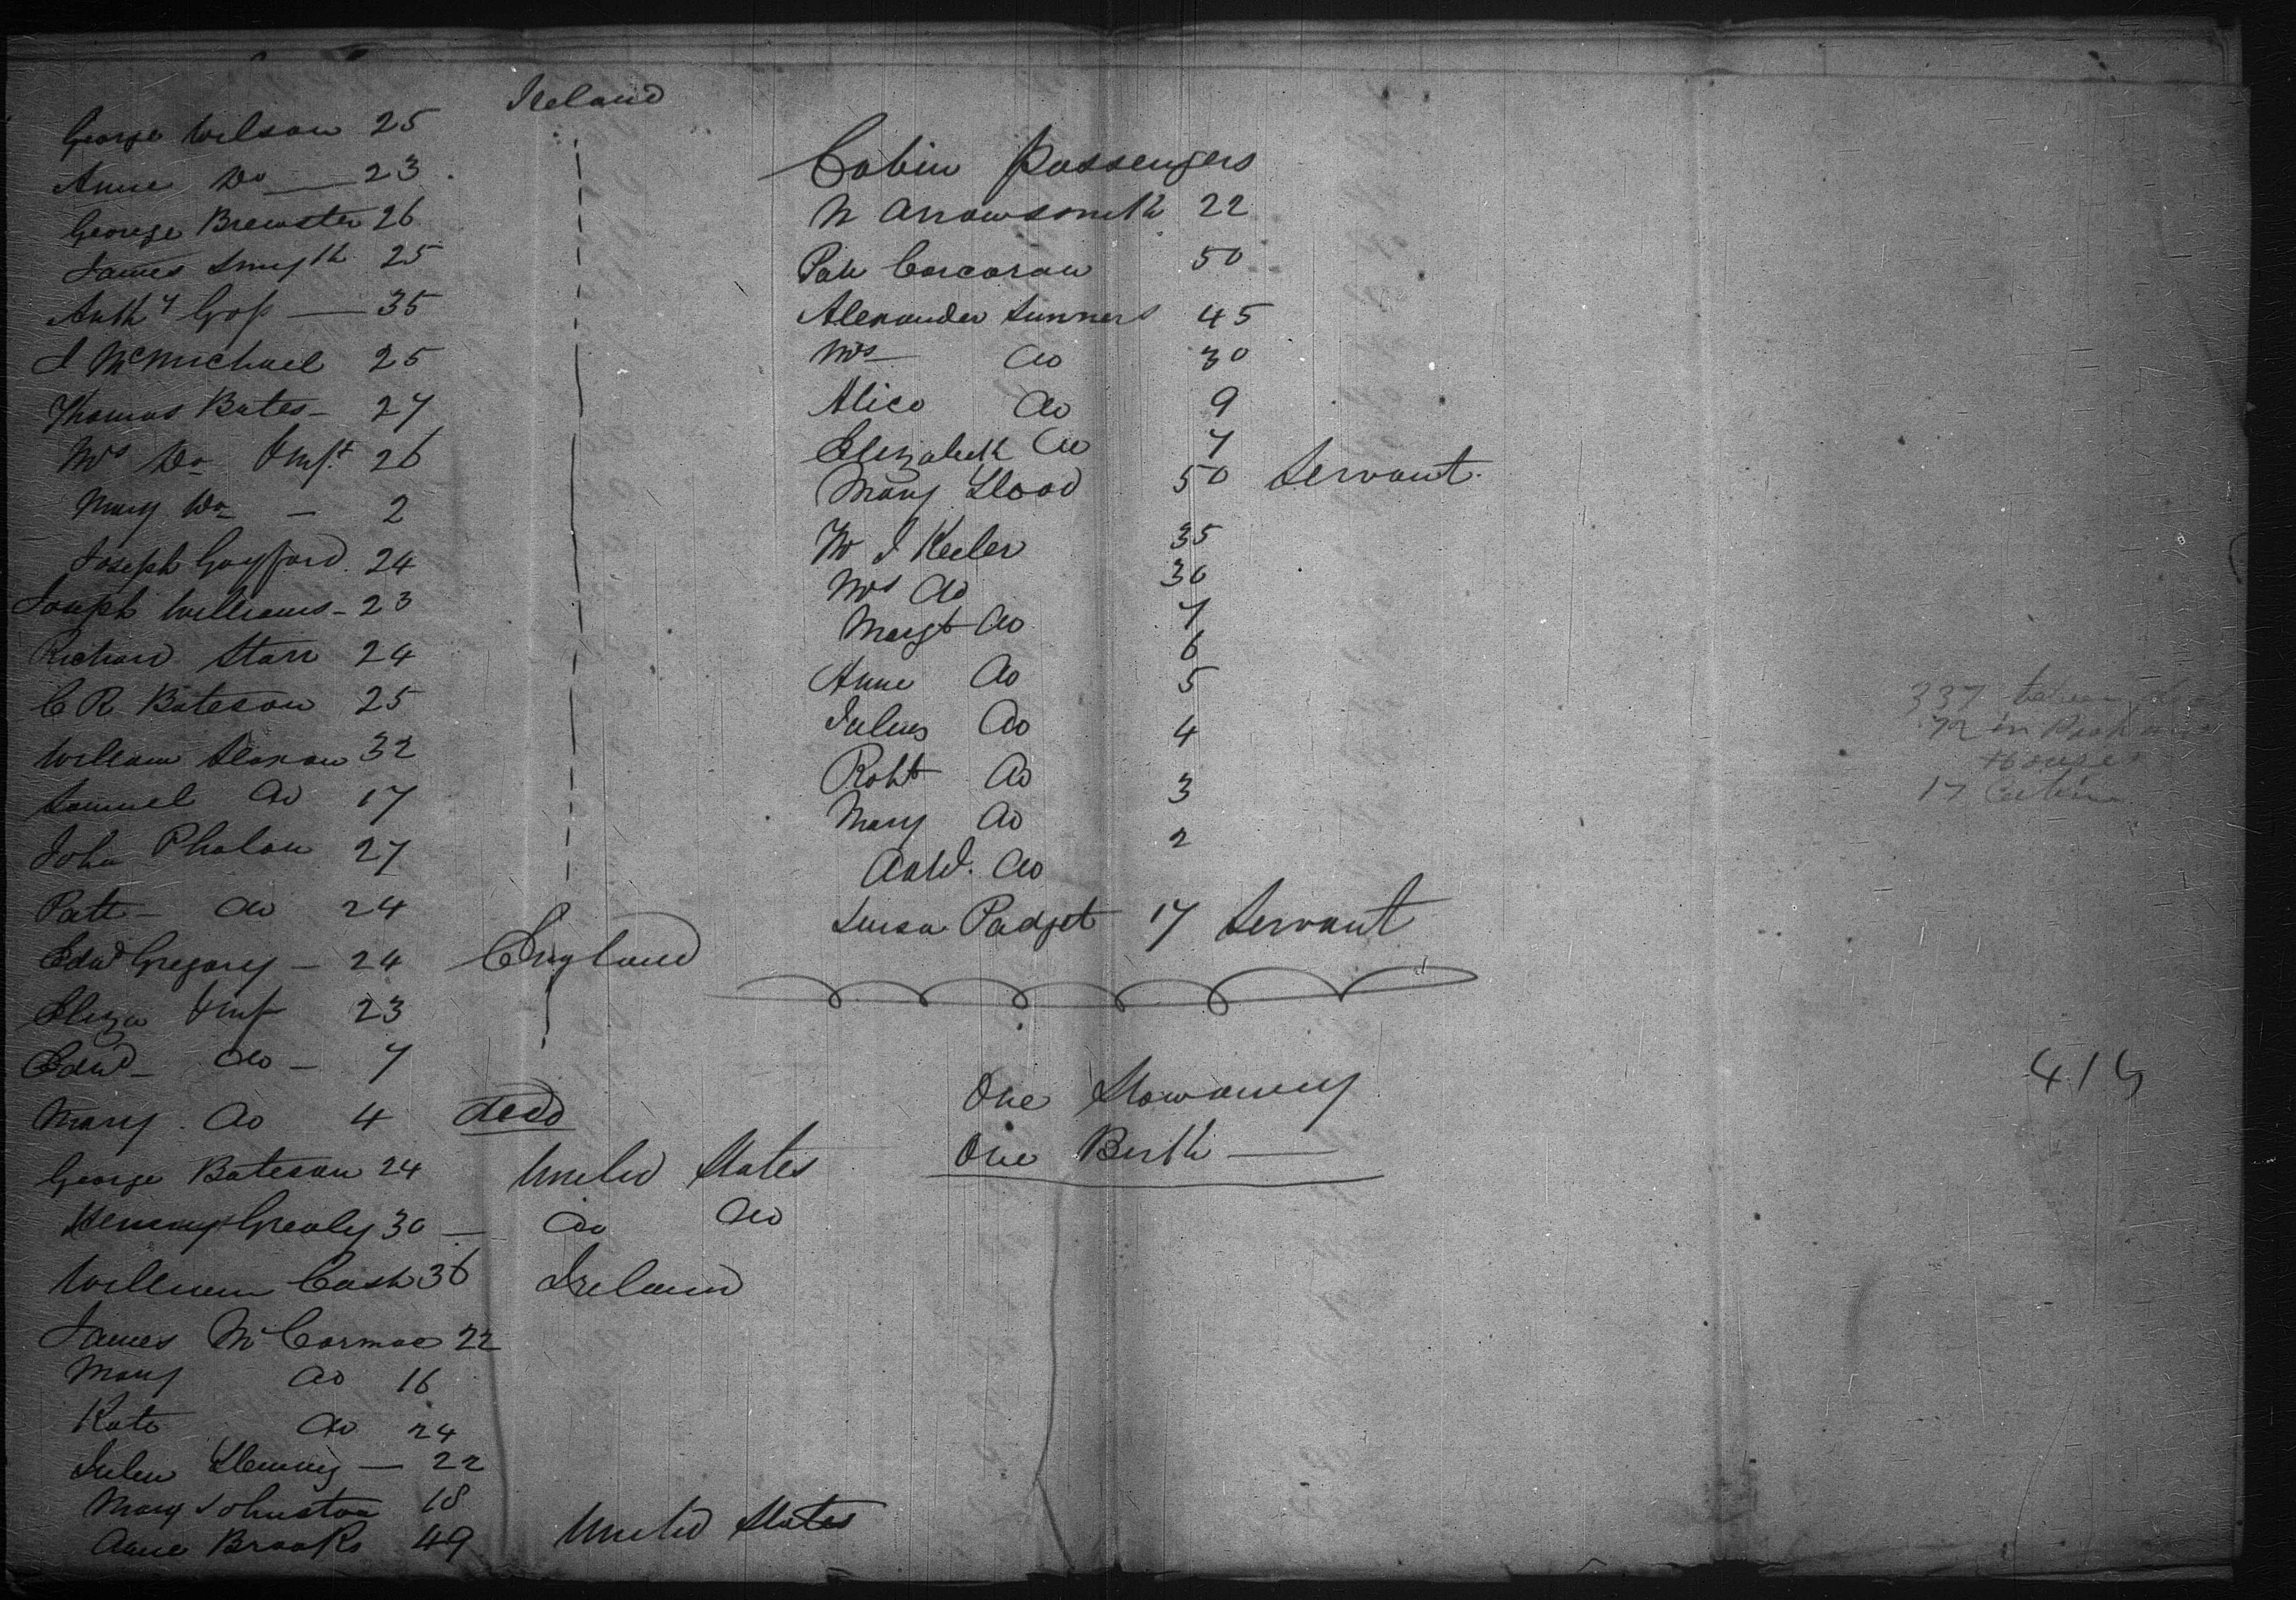 Ireland
George Wilson 25
Anne Do — 23
George Brewster 26
James Smyth 25
Anthy Goss — 35
J McMichael 25
Thomas Bates - 27
Mrs Do & Inft 26
Mary Do - 2
Joseph Gayford 24
Joseph Williams - 23
Richard Starr 24
C R Bateson 25
William 32
Samuel do 17
John Phalan 27
Patt - do 24
Edwd Gregory - 24 England
Eliza & Inf 23
Edwd - do - 7
Mary do 4 dead
George Bateson 24 United States
Henry Grealy 30 — do do
William Cash 36 Ireland
James McCormac 22
Mary do 16
Kate do 24
22
Mary Johnston 18
Anne Brooks 49 United States
Cabin Passengers
N Arrowsmith 22
Patt Corcoran 50
Alexander Sumners 45
Mrs do 30
Alice do 9
Elizabeth do 7
Mary Flood 50 Servant
W J Keeler 35
Mrs do 30
Margt do 7
Anne do 6
Julius do 5
Robt do 4
Mary do 3
do 2
Luisa Padget 17 Servant
One Stowaway
One Birth —
337
72 in
Houses
17 Cabin
415